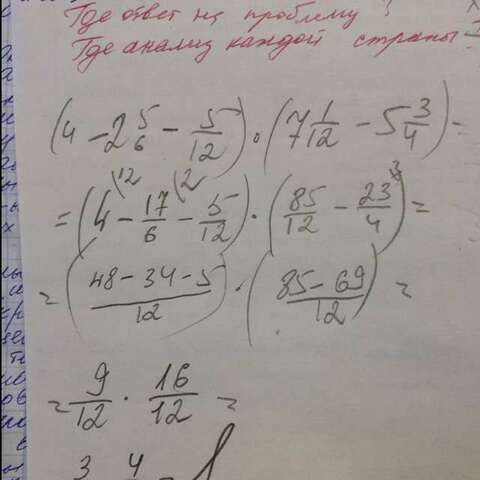 Где ответ на проблему?
Где анализ каждой страны
(4 - 2 5/6 - 5/12) · (7 1/12 - 5 3/4) =
= (4 - 17/6 - 5/12) · (85/12 - 23/4) =
= (48 - 34 - 5)/12 · (85 - 69)/12 =
= 9/12 · 16/12 =
3 4 = 1